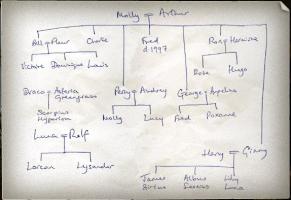 Molly = Arthur
Bill = Fleur Charlie Fred Ron = Hermione
d.1997
Victoire Dominique Louis Rose Hugo
Draco = Astoria Percy = Audrey George = Angelina
Greengrass
Scorpius Molly Lucy Fred Roxanne
Hyperion
Luna = Rolf
Harry = Ginny
Lorcan Lysander
James Albus Lily
Sirius Severus Luna